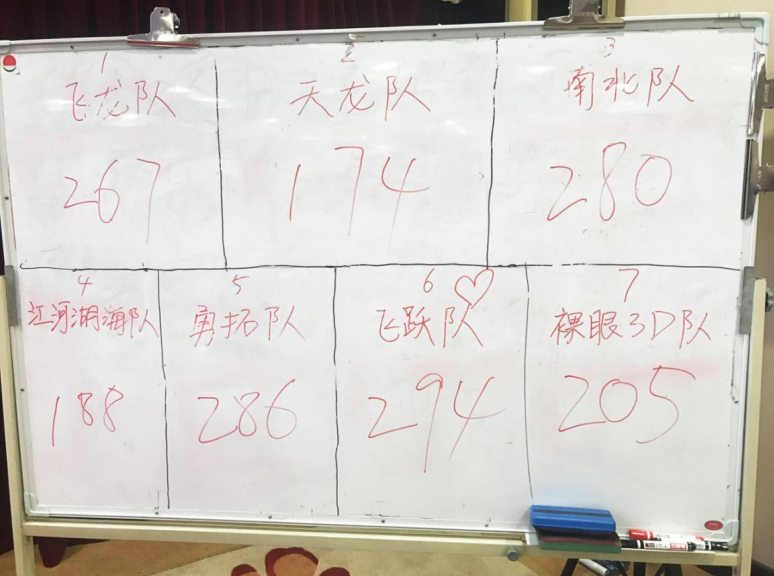 1
飞龙队
267
2
天龙队
174
3
南北队
280
4
江河湖海队
188
5
勇拓队
286
6
飞跃队
294
7
裸眼3D队
205